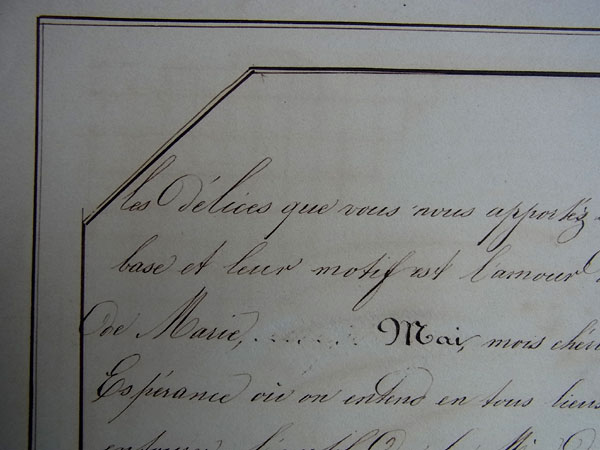 les Délices que vous nous apportez
base et leur motif est l'amour
de Marie, ....... Mai, mois chéri
Espérance où on entend en tous lieux